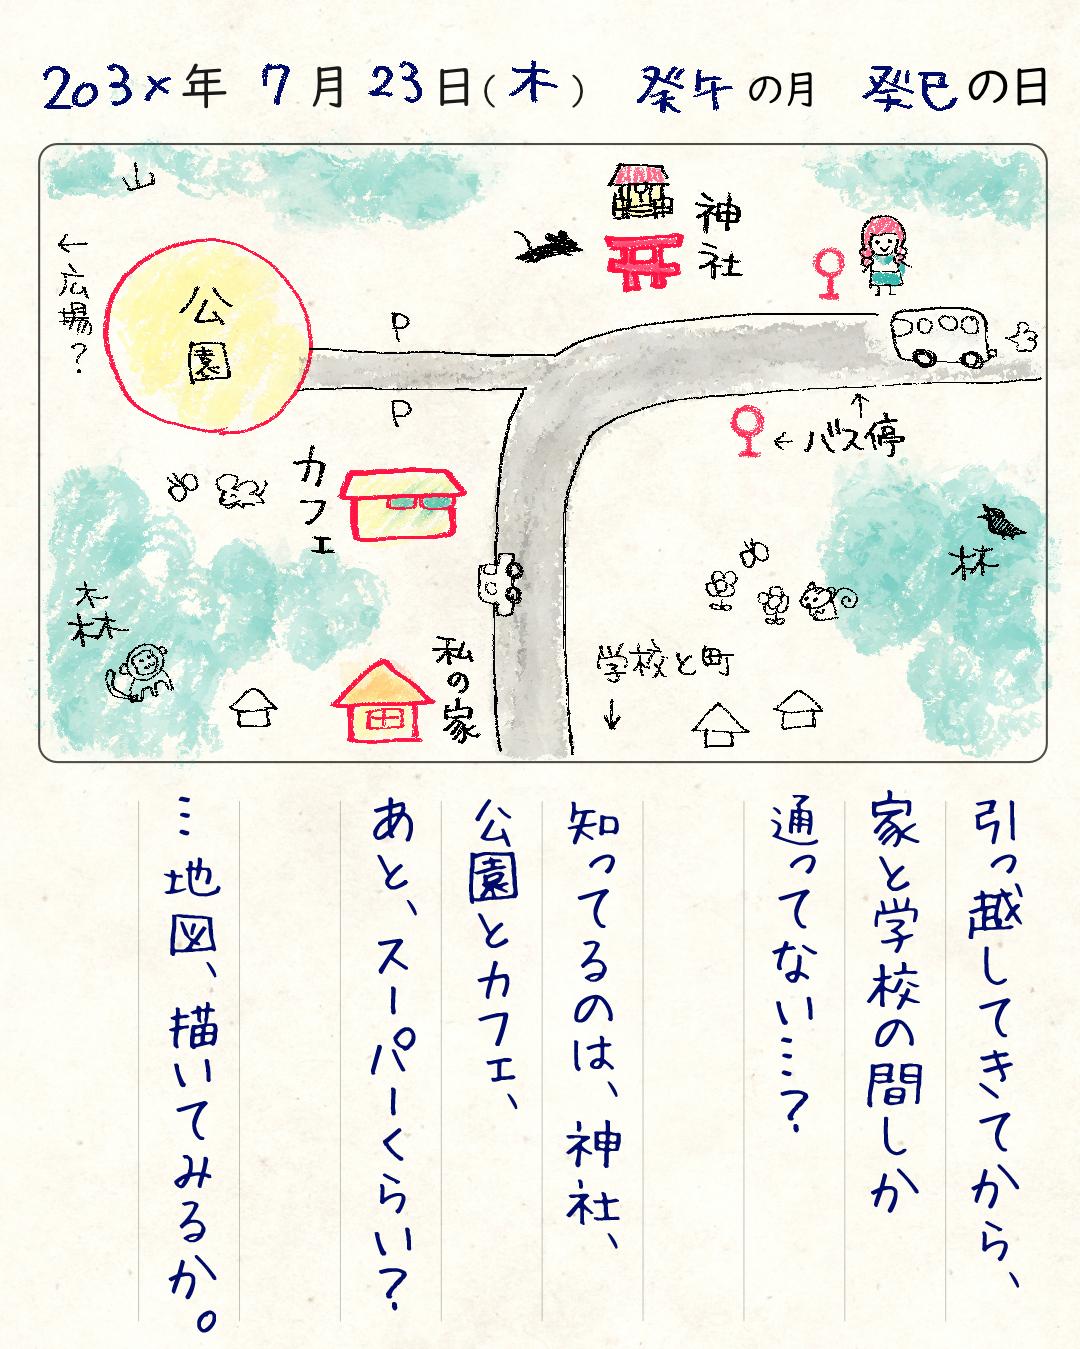 203×年 7月23日(木) 癸午の月 癸巳の日
山
←広場？
公園
P
P
神社
←バス停
↑
カフェ
森
林
私の家
学校と町
↓
引っ越してきてから、
家と学校の間しか
通ってない…？
知ってるのは、神社、
公園とカフェ、
あと、スーパーくらい？
…地図、描いてみるか。